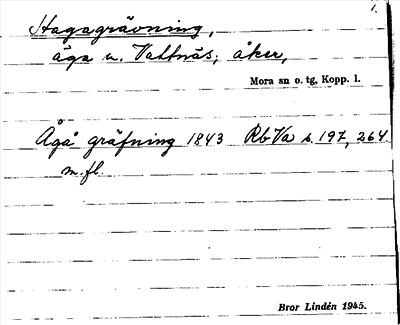 1.
Hagagrävning,
äga u. Vattnäs; åker,
Mora sn o. tg, Kopp. l.
Ågå gräfning 1843 Rb Va s. 197, 264
m.fl.
Bror Lindén 1945.